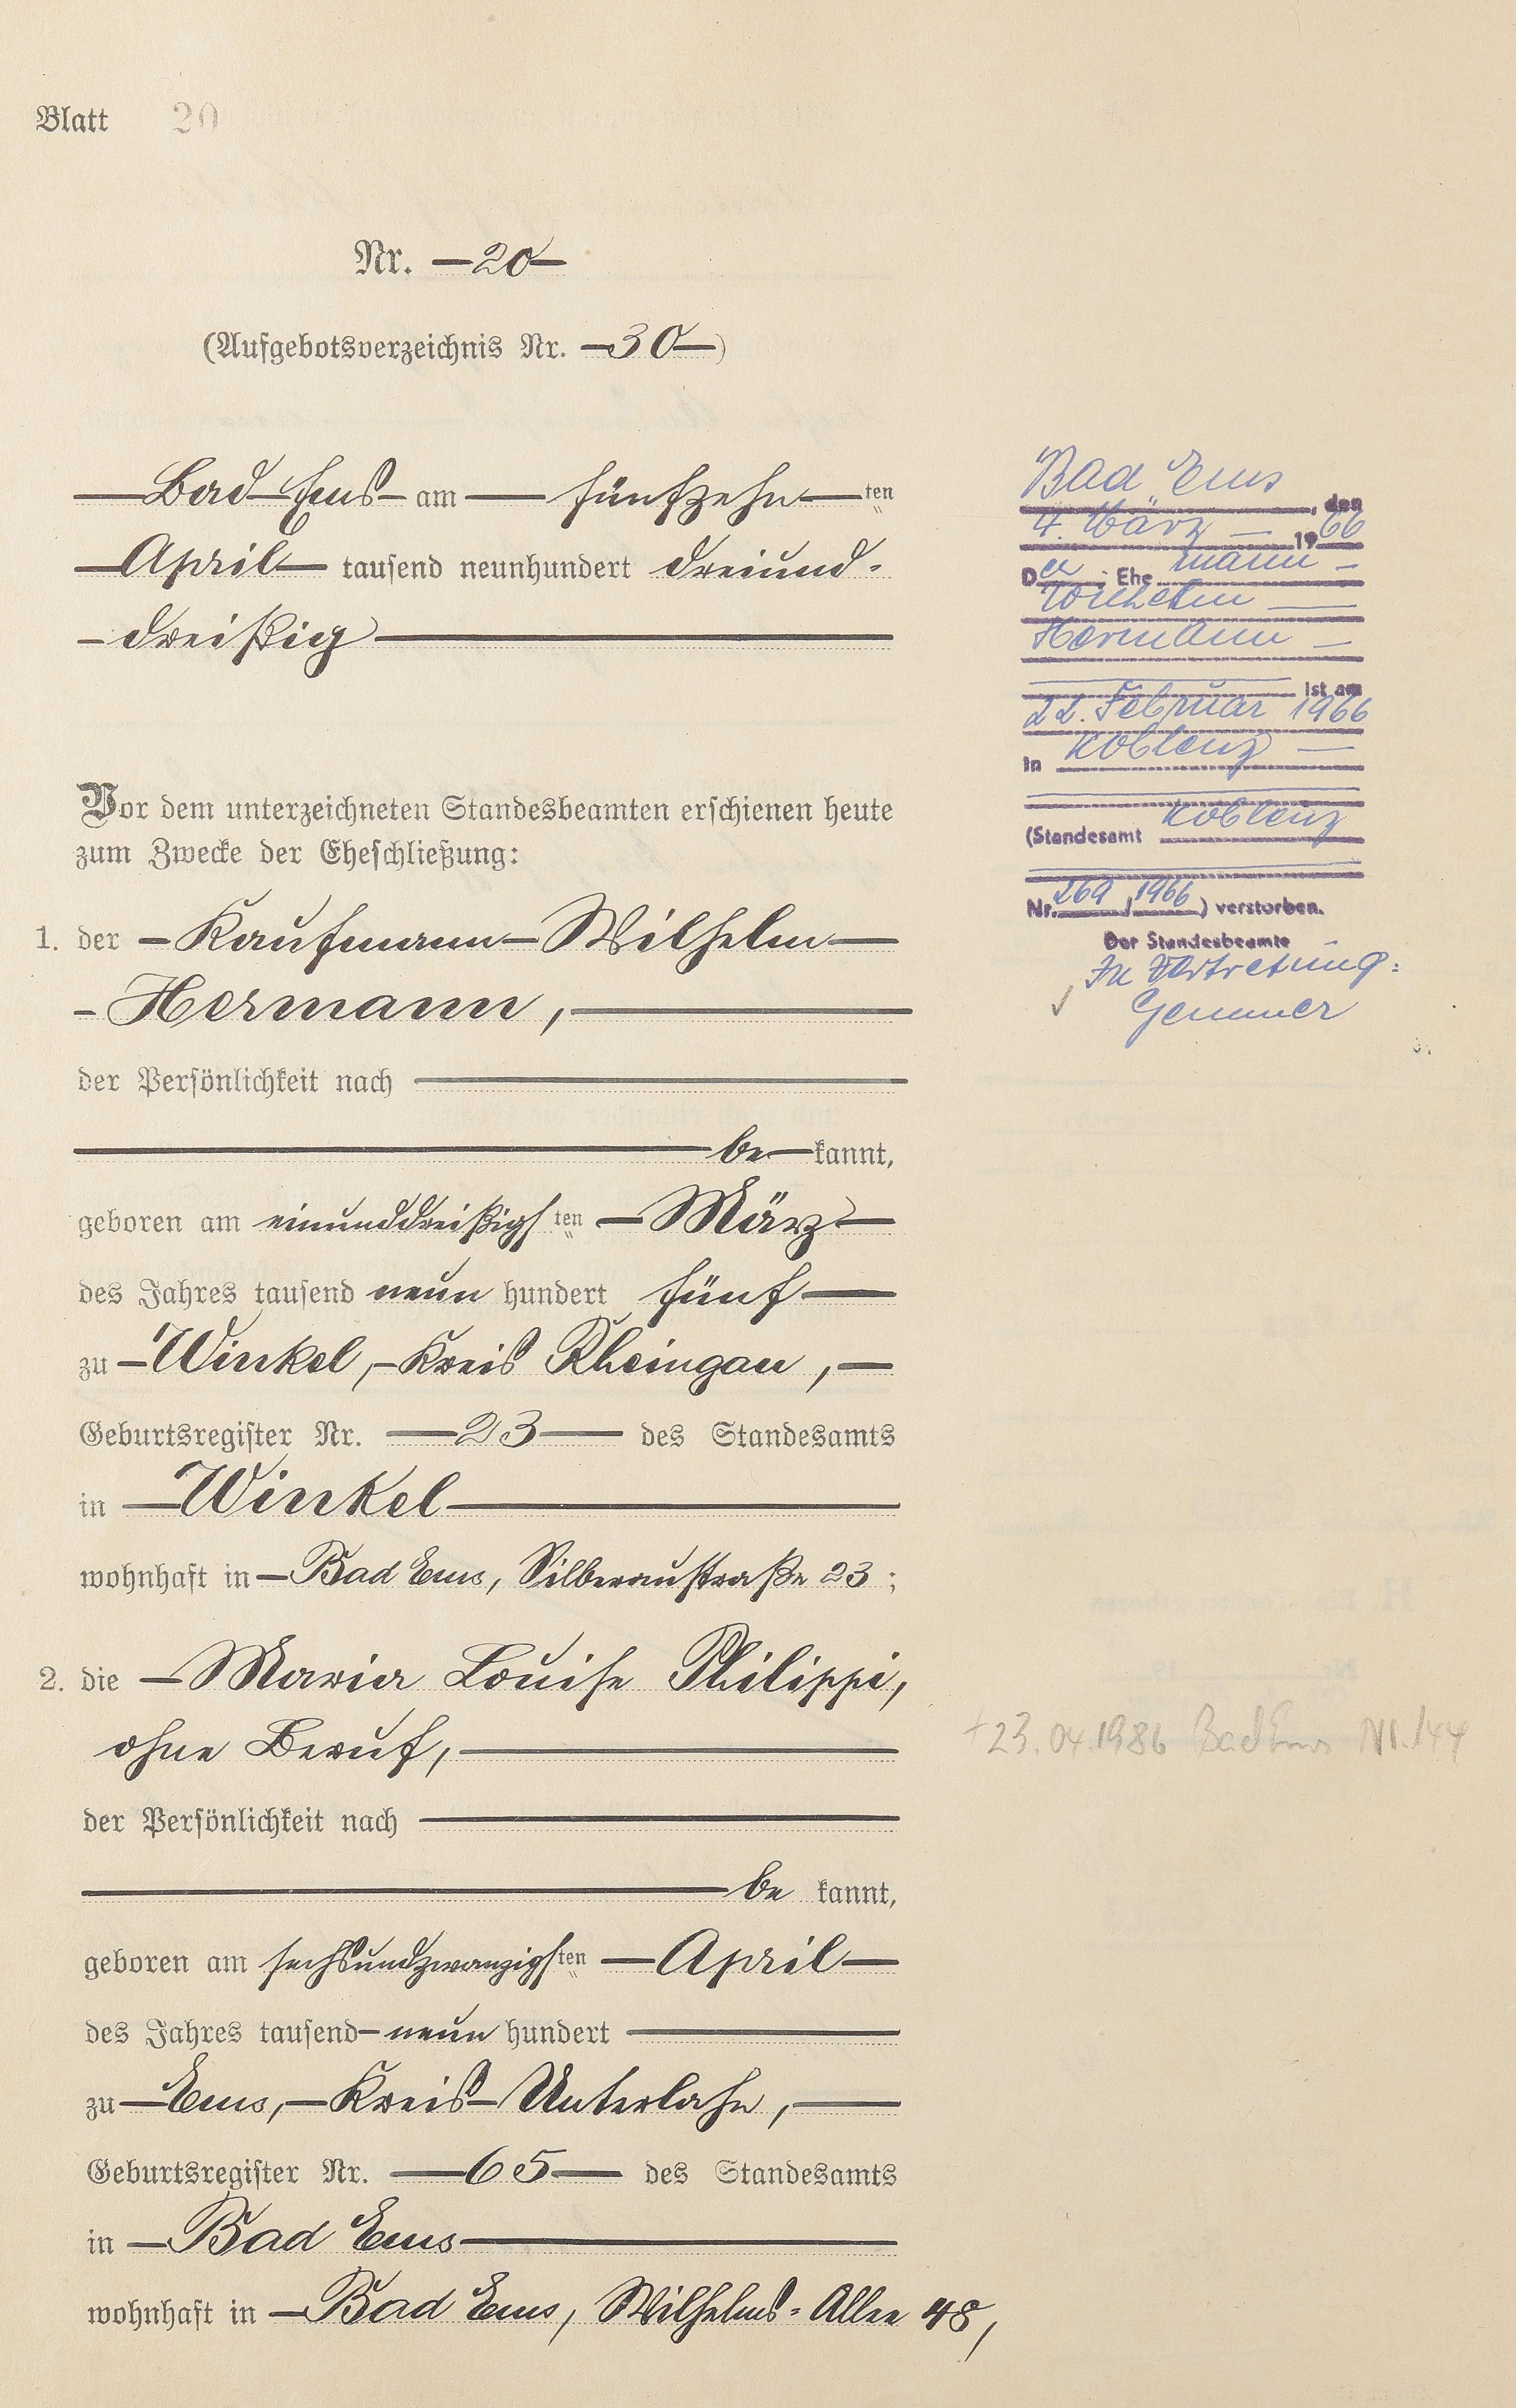 Blatt 20
Nr. 20
(Aufgebotsverzeichnis Nr. 30)
Bad Ems am fünfzehn ten
April tausend neunhundert dreiund-
dreißig
Vor dem unterzeichneten Standesbeamten erschienen heute
zum Zwecke der Eheschließung:
1. der Kaufmann Wilhelm
Hermann,
der Persönlichkeit nach
be kannt,
geboren am einunddreißigs ten März
des Jahres tausend neun hundert fünf
zu Winkel, Kreis Rheingau,
Geburtsregister Nr. 23 des Standesamts
in Winkel
wohnhaft in Bad Ems, Silberaustraße 23;
2. die Maria Louise Philippi,
ohne Beruf,
der Persönlichkeit nach
be kannt,
geboren am sechsundzwanzigs ten April
des Jahres tausend neun hundert
zu Ems, Kreis Unterlahn,
Geburtsregister Nr. 65 des Standesamts
in Bad Ems
wohnhaft in Bad Ems, Wilhelms-Allee 48,
Bad Ems, den
4. März 1966
Der Ehemann
Wilhelm
Hermann
ist am
22. Februar 1966
in Koblenz
(Standesamt Koblenz
Nr. 269/1966) verstorben.
Der Standesbeamte
In Vertretung:
Gemmer
+ 23.04.1986 Bad Ems Nr. 144